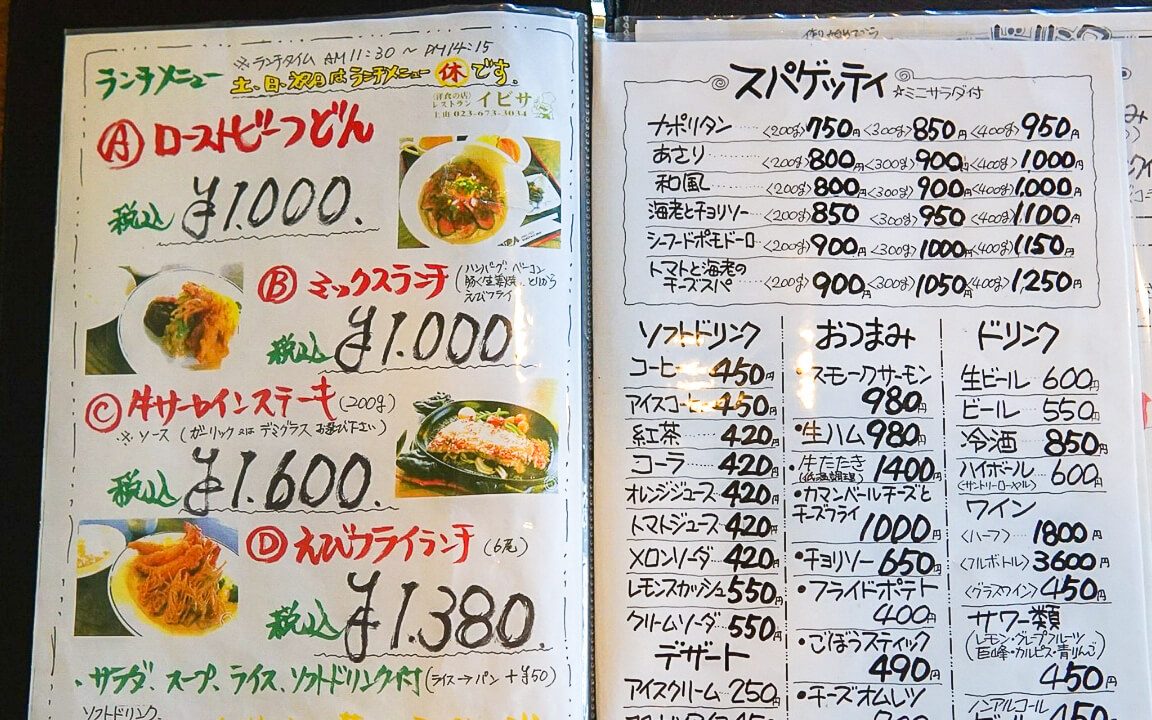 ランチメニュー
※ランチタイム AM11:30 ~ PM14:15
土、日、祝日はランチメニュー 休 です。
(洋食の店)
レストラン イビサ
上山 023-673-3034
Ⓐ ローストビーフどん
税込 ¥1.000.
Ⓑ ミックスランチ
(ハンバーグ・ベーコン
豚く生姜焼、とりから
えびフライ)
税込 ¥1.000
Ⓒ 牛サーロインステーキ (200g)
※ ソース (ガーリック又はデミグラスお選び下さい)
税込 ¥1.600.
Ⓓ えびフライランチ (6尾)
税込 ¥1.380.
・サラダ、スープ、ライス、ソフトドリンク付 (ライス→パン +¥50)
ソフトドリンク
スパゲッティ ☆ミニサラダ付
ナポリタン……<200g>750円<300g>850円<400g>950円
あさり <200g>800円<300g>900円<400g>1.000円
和風 <200g>800円<300g>900円<400g>1.000円
海老とチョリソー <200g>850 <300g>950 <400g>1100円
シーフードポモドーロ <200g>900円<300g>1000円<400g>1150円
トマトと海老の
チーズスパ <200g>900円<300g>1050円<400g>1.250円
ソフトドリンク
コーヒー 450円
アイスコーヒー 450円
紅茶 420円
コーラ 420円
オレンジジュース 420円
トマトジュース 420円
メロンソーダ 420円
レモンスカッシュ 550円
クリームソーダ 550円
デザート
アイスクリーム 250円
おつまみ
・スモークサーモン
980円
・生ハム 980円
・牛たたき 1400円
(低温調理)
・カマンベールチーズと
チーズフライ
1000円
・チョリソー 650円
・フライドポテト
400円
・ごぼうスティック
490円
・チーズオムレツ
ドリンク
生ビール 600円
ビール 550円
冷酒 850円
ハイボール 600円
<サントリーローヤル>
ワイン
<ハーフ> 1800円
<フルボトル> 3600円
<グラスワイン> 450円
サワー類
(レモン・グレープフルーツ
巨峰・カルピス・青りんご)
450円
ノンアルコール
450円